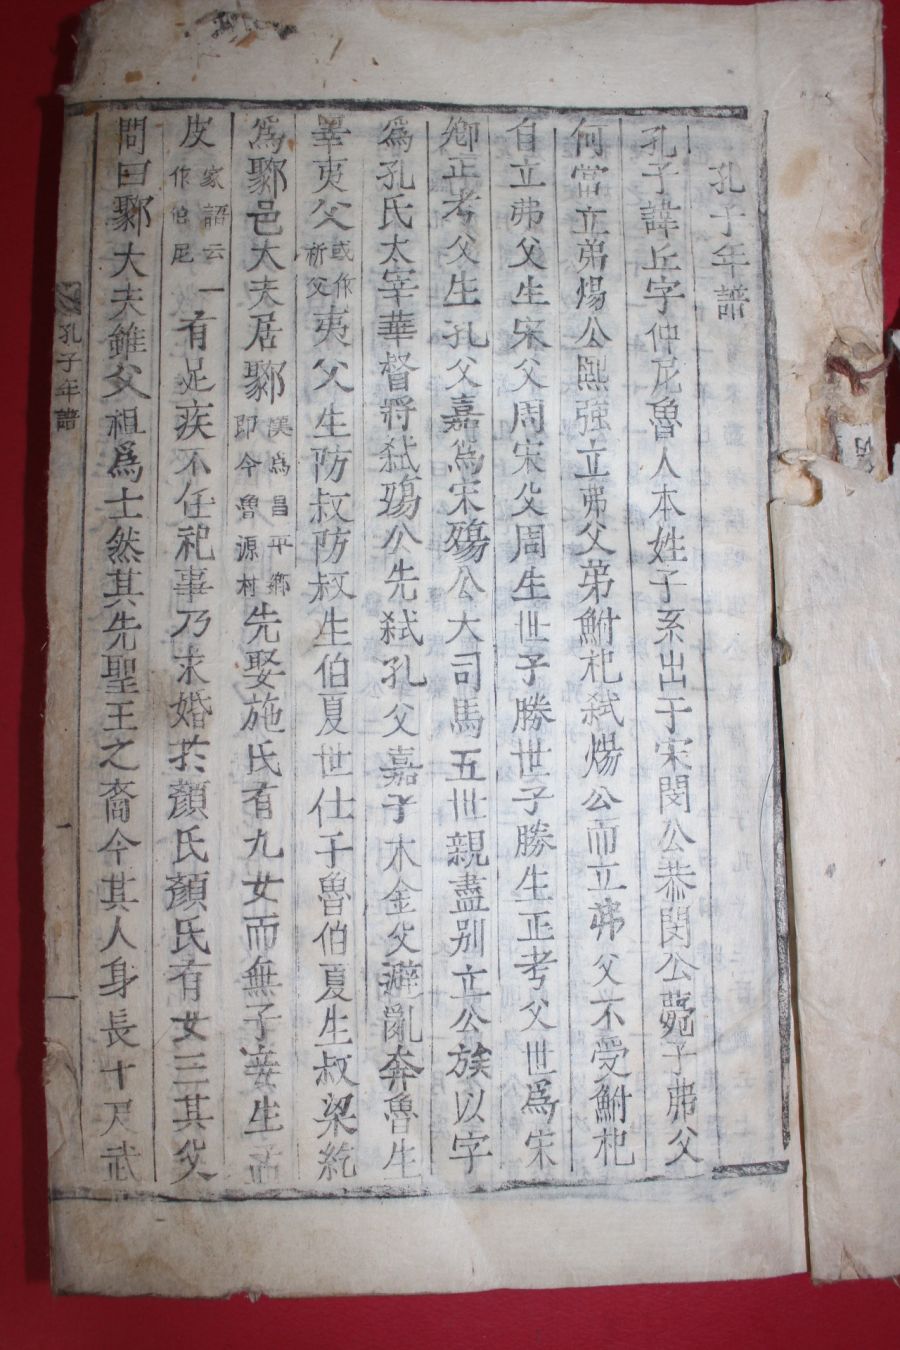 孔子年譜
孔子諱丘字仲尼魯人本姓子系出于宋閔公恭閔公薨子弗父
何當立弟煬公熙強立弗父弟鮒杞弑煬公而立弗父不受鮒杞
自立弗父生宋父周宋父周生世子勝世子勝生正考父世爲宋
卿正考父生孔父嘉爲宋殤公大司馬五世親盡別立公族以字
爲孔氏太宰華督將弑殤公先弑孔父嘉子木金父避亂奔魯生
睾夷父或作祈父夷父生防叔防叔生伯夏世仕于魯伯夏生叔梁紇
爲鄹邑大夫居鄹漢爲昌平鄉即今魯源村先娶施氏有九女而無子妾生孟
皮家語云作伯尼一有足疾不任祀事乃求婚於顔氏顔氏有女三其父
問曰鄹大夫雖父祖爲士然其先聖王之裔今其人身長十尺武
孔子年譜
一